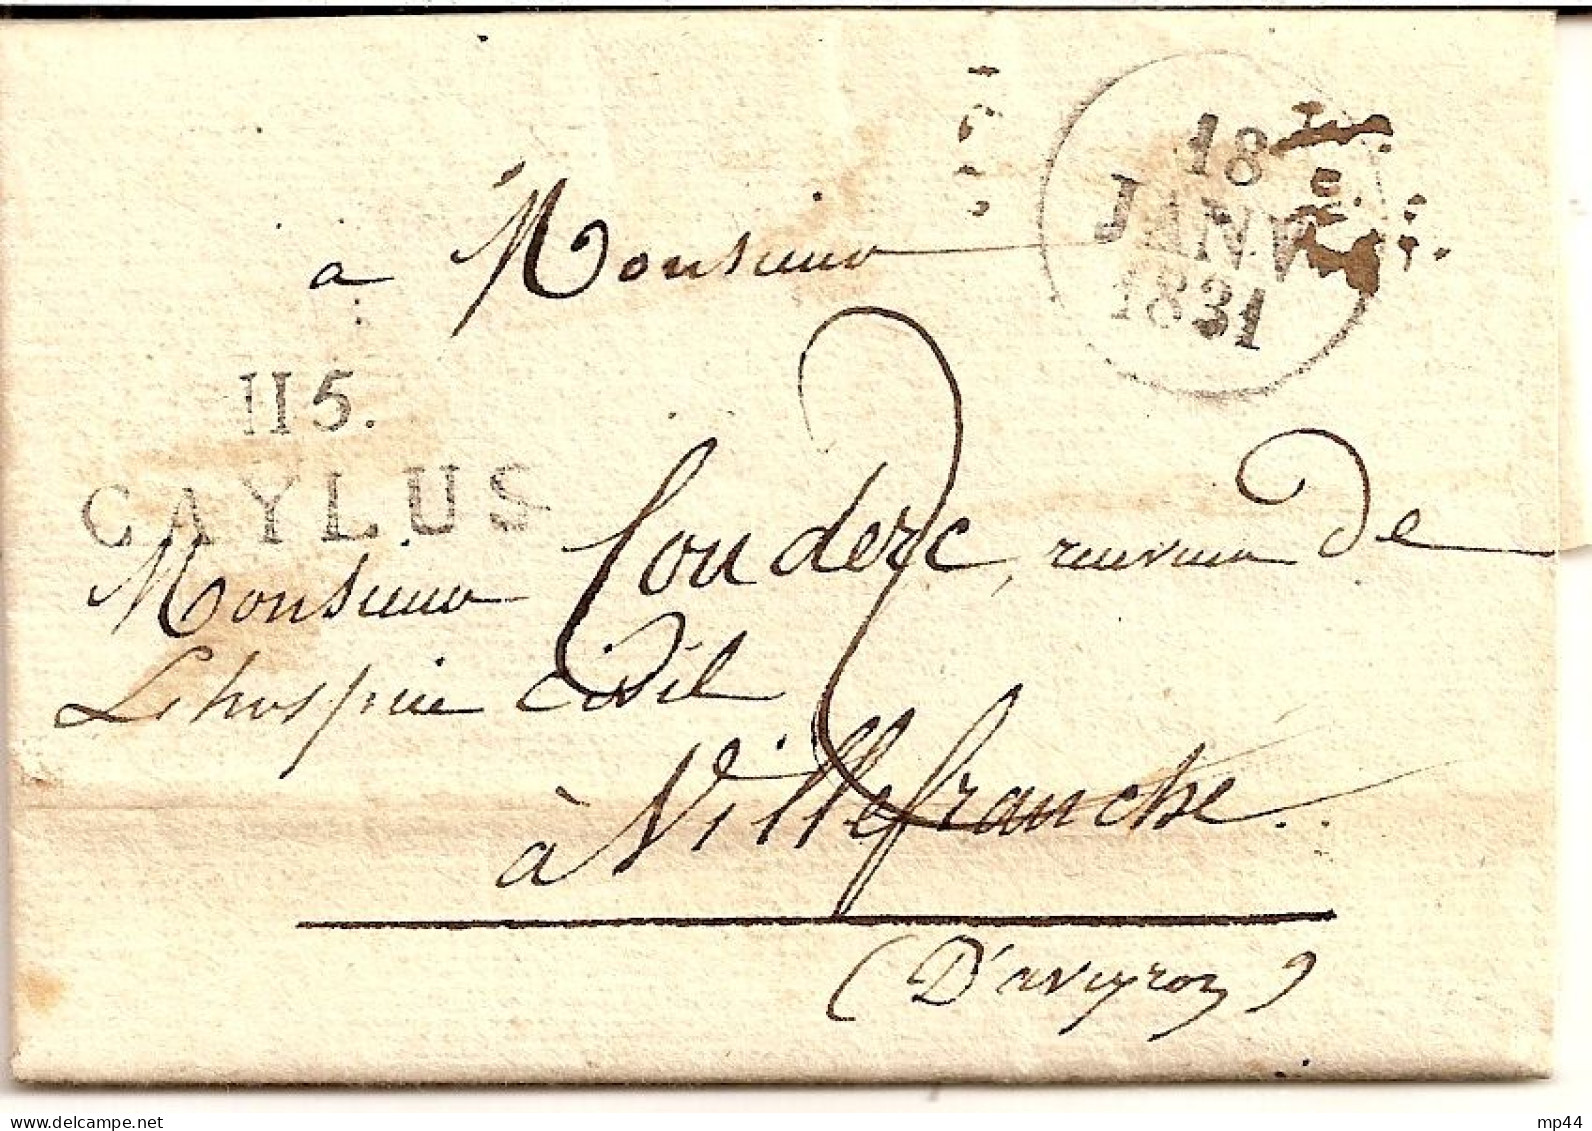 18
JANV
1831
à Monsieur
115.
CAYLUS
Monsieur Couderc, receveur De
Lhospice civil
2
à Villefranche.
(D'aveyron)
www.delcampe.net
mp44